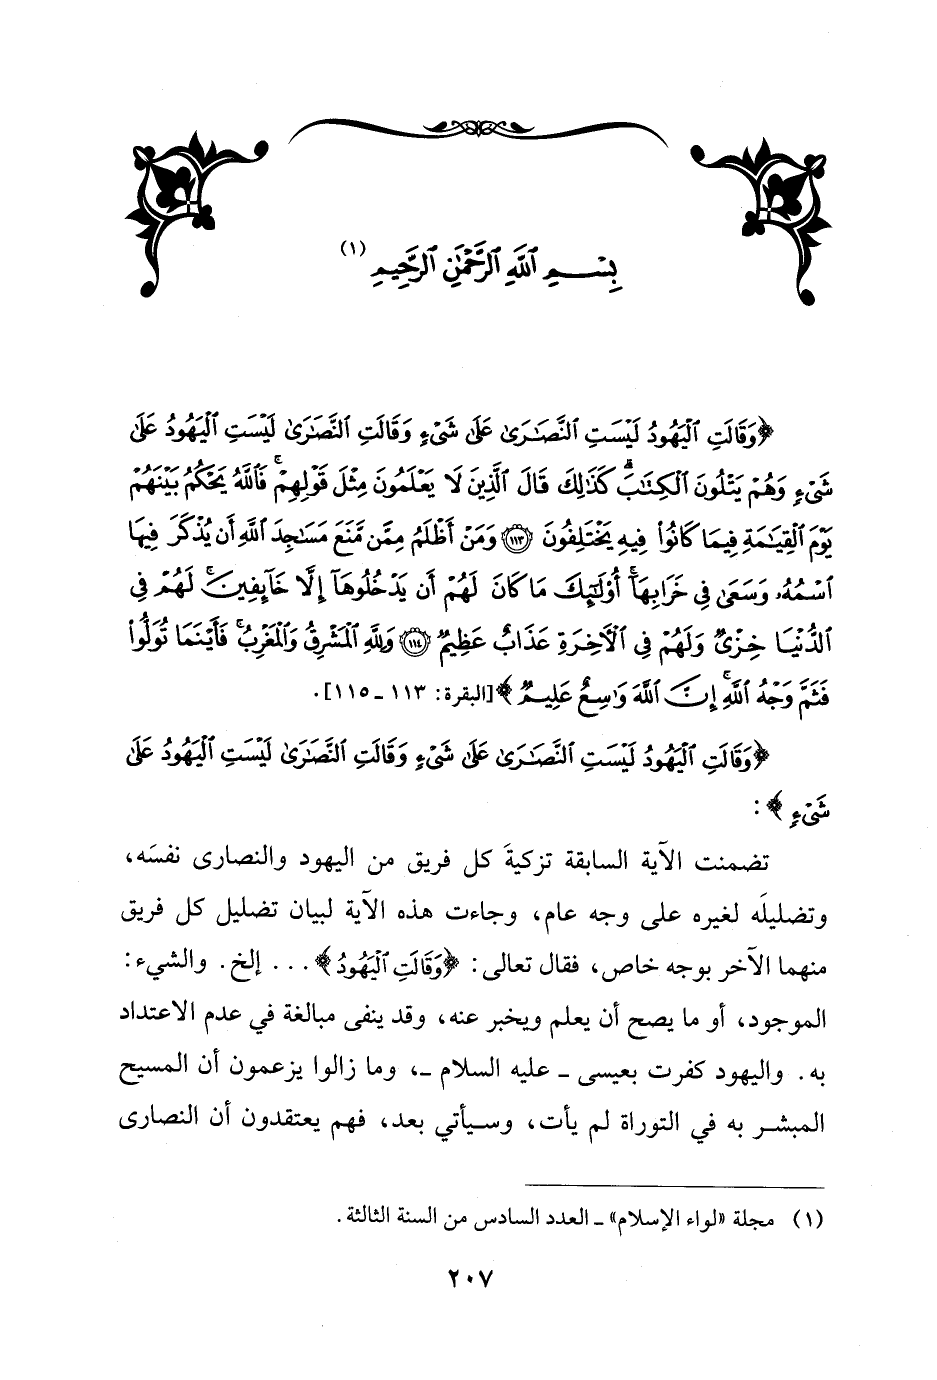 بِسْمِ ٱللَّهِ ٱلرَّحْمَٰنِ ٱلرَّحِيمِ (١)
﴿وَقَالَتِ ٱلْيَهُودُ لَيْسَتِ ٱلنَّصَٰرَىٰ عَلَىٰ شَىْءٍ وَقَالَتِ ٱلنَّصَٰرَىٰ لَيْسَتِ ٱلْيَهُودُ عَلَىٰ
شَىْءٍ وَهُمْ يَتْلُونَ ٱلْكِتَٰبَۗ كَذَٰلِكَ قَالَ ٱلَّذِينَ لَا يَعْلَمُونَ مِثْلَ قَوْلِهِمْۚ فَٱللَّهُ يَحْكُمُ بَيْنَهُمْ
يَوْمَ ٱلْقِيَٰمَةِ فِيمَا كَانُوا۟ فِيهِ يَخْتَلِفُونَ ۝١١٣ وَمَنْ أَظْلَمُ مِمَّن مَّنَعَ مَسَٰجِدَ ٱللَّهِ أَن يُذْكَرَ فِيهَا
ٱسْمُهُۥ وَسَعَىٰ فِى خَرَابِهَآۚ أُو۟لَٰٓئِكَ مَا كَانَ لَهُمْ أَن يَدْخُلُوهَآ إِلَّا خَآئِفِينَۚ لَهُمْ فِى
ٱلدُّنْيَا خِزْىٌ وَلَهُمْ فِى ٱلْءَاخِرَةِ عَذَابٌ عَظِيمٌ ۝١١٤ وَلِلَّهِ ٱلْمَشْرِقُ وَٱلْمَغْرِبُۚ فَأَيْنَمَا تُوَلُّوا۟
فَثَمَّ وَجْهُ ٱللَّهِۚ إِنَّ ٱللَّهَ وَٰسِعٌ عَلِيمٌ﴾ [البقرة: ١١٣ ـ ١١٥].
﴿وَقَالَتِ ٱلْيَهُودُ لَيْسَتِ ٱلنَّصَٰرَىٰ عَلَىٰ شَىْءٍ وَقَالَتِ ٱلنَّصَٰرَىٰ لَيْسَتِ ٱلْيَهُودُ عَلَىٰ
شَىْءٍ﴾:
تضمنت الآية السابقة تزكيةَ كل فريق من اليهود والنصارى نفسَه،
وتضليلَه لغيره على وجه عام، وجاءت هذه الآية لبيان تضليل كل فريق
منهما الآخر بوجه خاص، فقال تعالى: ﴿وَقَالَتِ ٱلْيَهُودُ﴾... إلخ. والشيء:
الموجود، أو ما يصح أن يعلم ويخبر عنه، وقد ينفى مبالغة في عدم الاعتداد
به. واليهود كفرت بعيسى ـ عليه السلام ـ، وما زالوا يزعمون أن المسيح
المبشر به في التوراة لم يأت، وسيأتي بعد، فهم يعتقدون أن النصارى
(١) مجلة «لواء الإسلام» ـ العدد السادس من السنة الثالثة.
٢٠٧